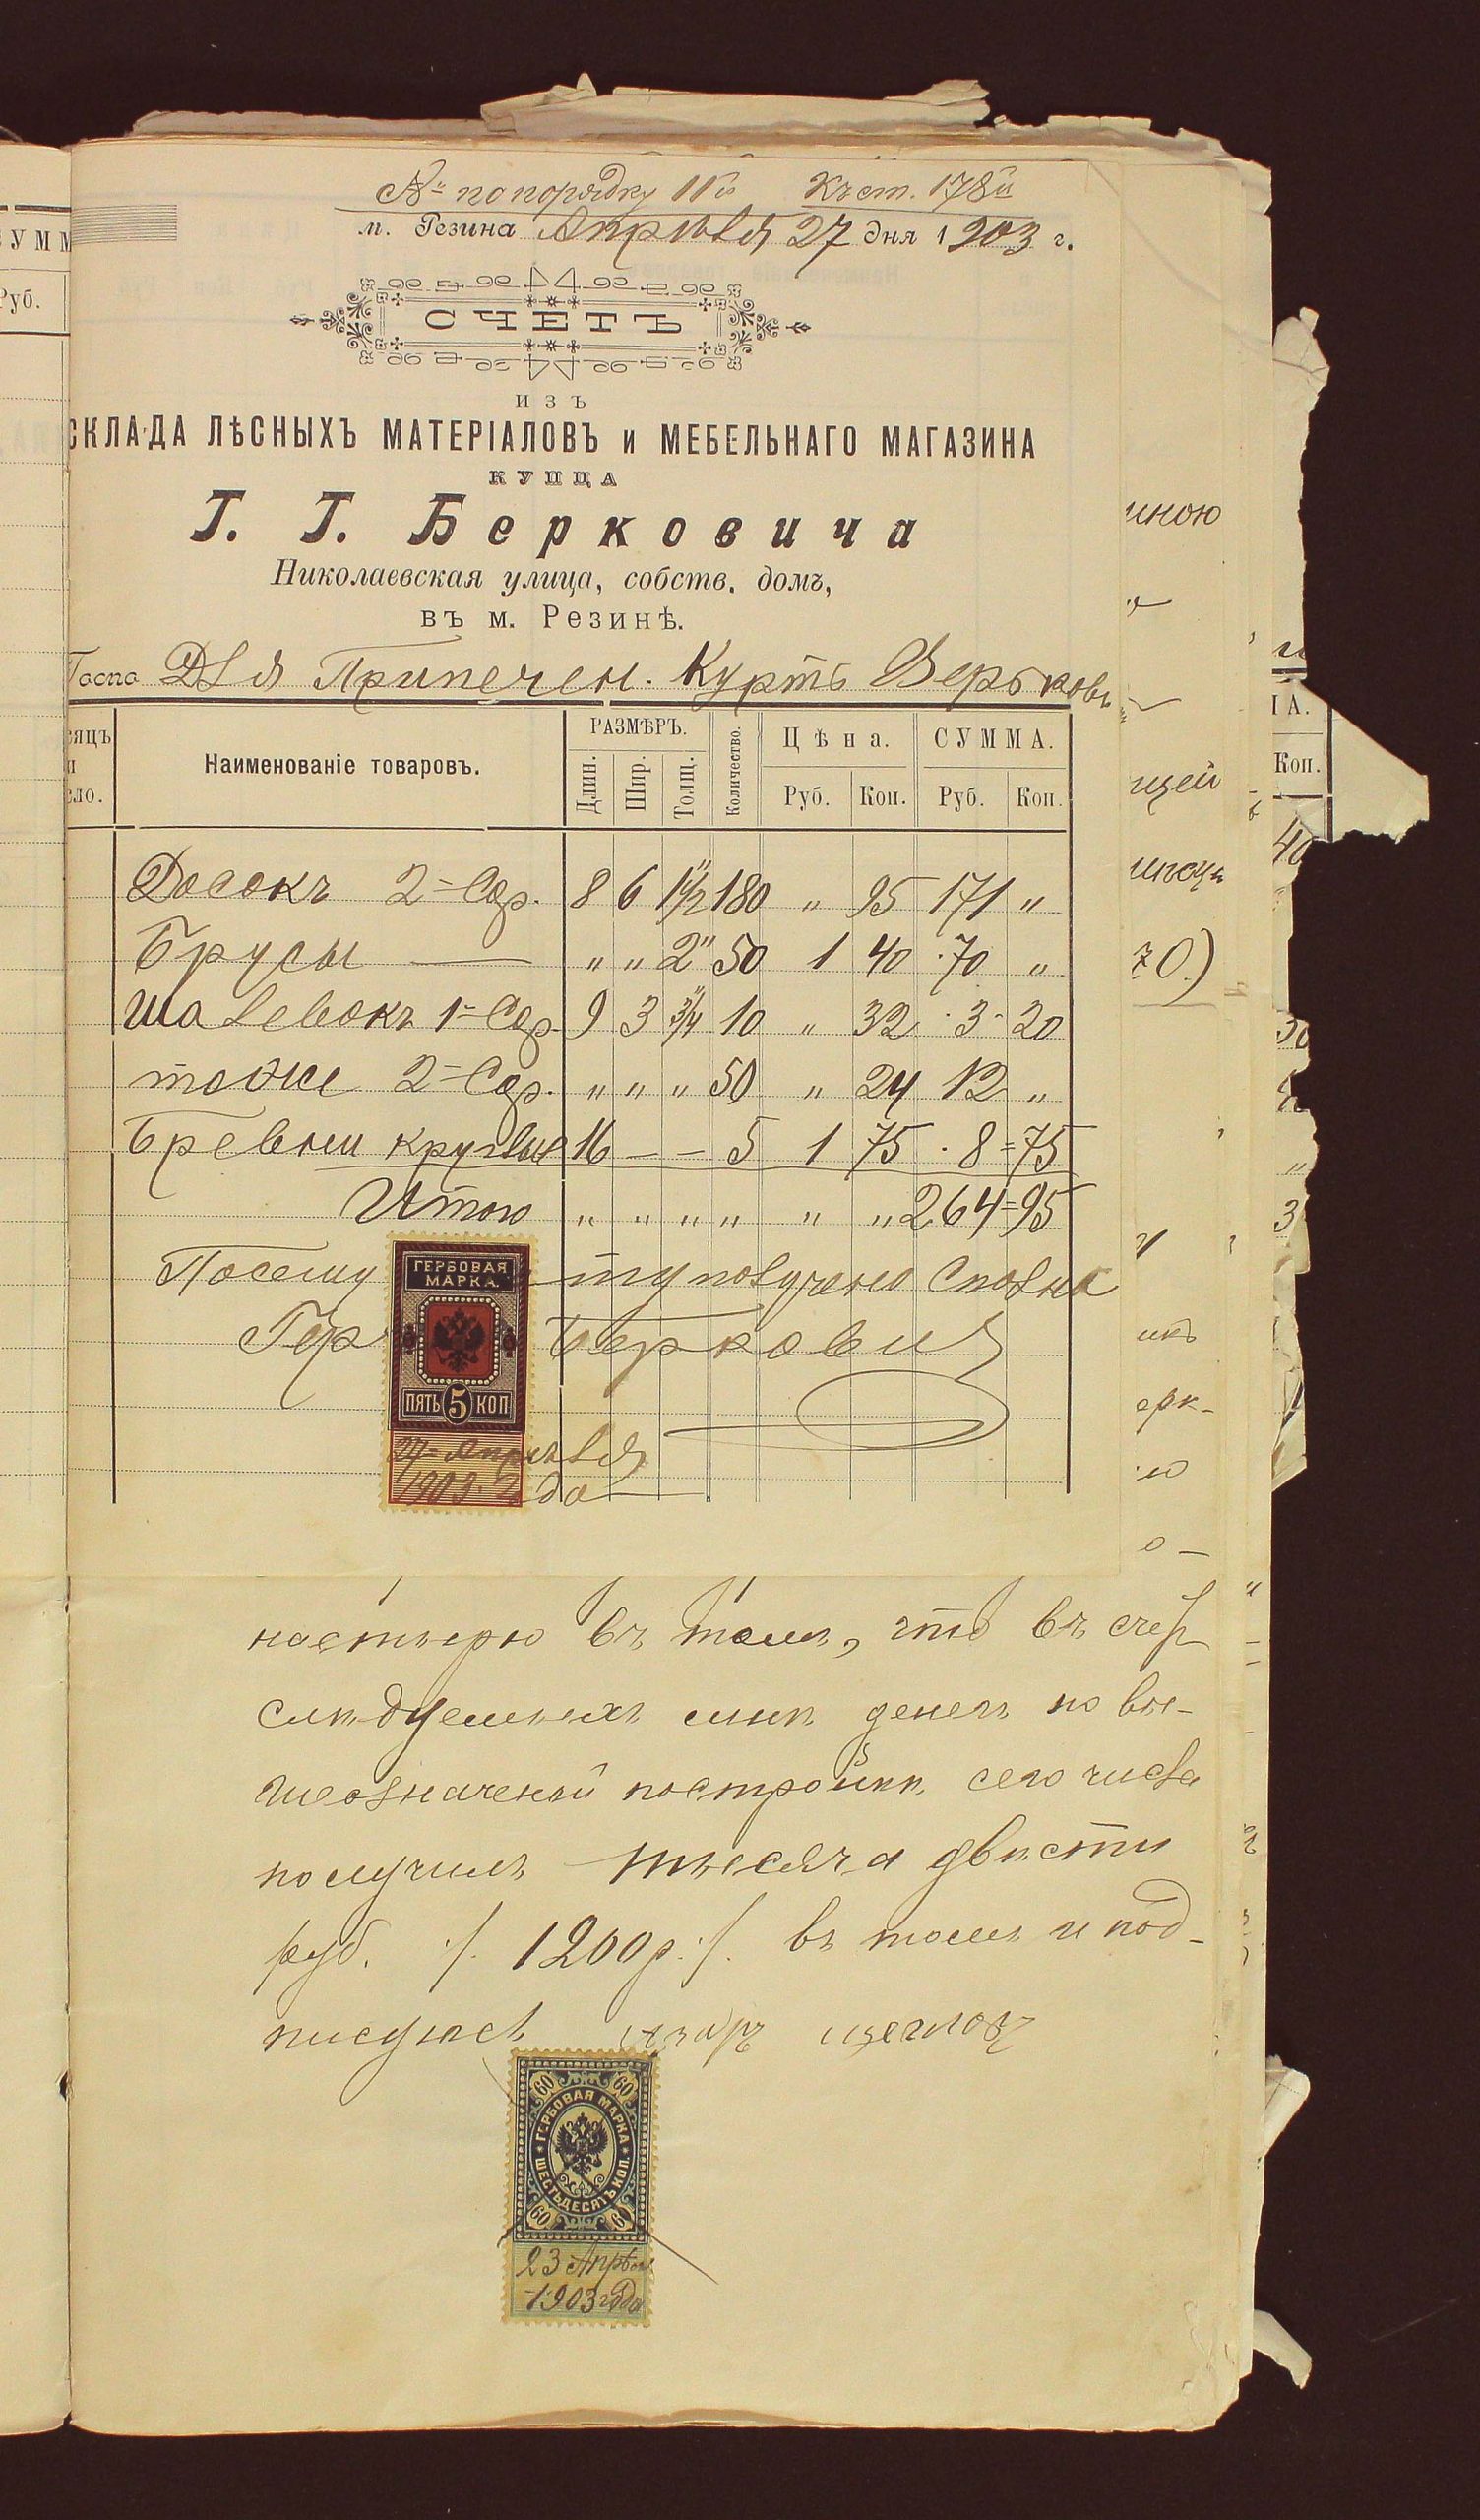 № по порядку 11й Къ ст. 178й
м. Резина Апрѣля 27 дня 1903 г.
СЧЕТЪ
ИЗЪ
СКЛАДА ЛѢСНЫХЪ МАТЕРІАЛОВЪ и МЕБЕЛЬНАГО МАГАЗИНА
КУПЦА
Г. Г. Берковича
Николаевская улица, собств. домъ,
въ м. Резинѣ.
Госпо Для Припечен. Курть Церьковь
сяцъ и сло. Наименованіе товаровъ. РАЗМѢРЪ. Длин. Шир. Толщ. Количество. Цѣна. Руб. Коп. СУММА. Руб. Коп.
Досокъ 2= Сор. 8 6 1½" 180 " 95 171 "
Брусы — " " 2" 50 1 40 70 "
Шалевокъ 1= Сор. 9 3 ¾" 10 " 32 3 20
тоже 2= Сор. " " " 50 " 24 12 "
Бревни круглые 16 — — 5 1 75 8=75
Итого " " " " " " 264=95
Посему ту получено Сполна
Гер Беркович
ГЕРБОВАЯ МАРКА
ПЯТЬ 5 КОП
27= Апрѣля
1903. Года
настьерю въ томъ, что въ счет
слѣдуемыхъ мнѣ денегъ по вы-
шеозначеной постройкѣ сего числа
получилъ тысяча двѣсти
руб. /. 1200 р. /. въ томъ и под-
писуюсь
ГЕРБОВАЯ МАРКА
ШЕСТЬДЕСЯТЪ КОП.
60 60 60 60
23 Апрѣля
1903 года
УММ
Руб.
иною
щей
70)
Коп.
40